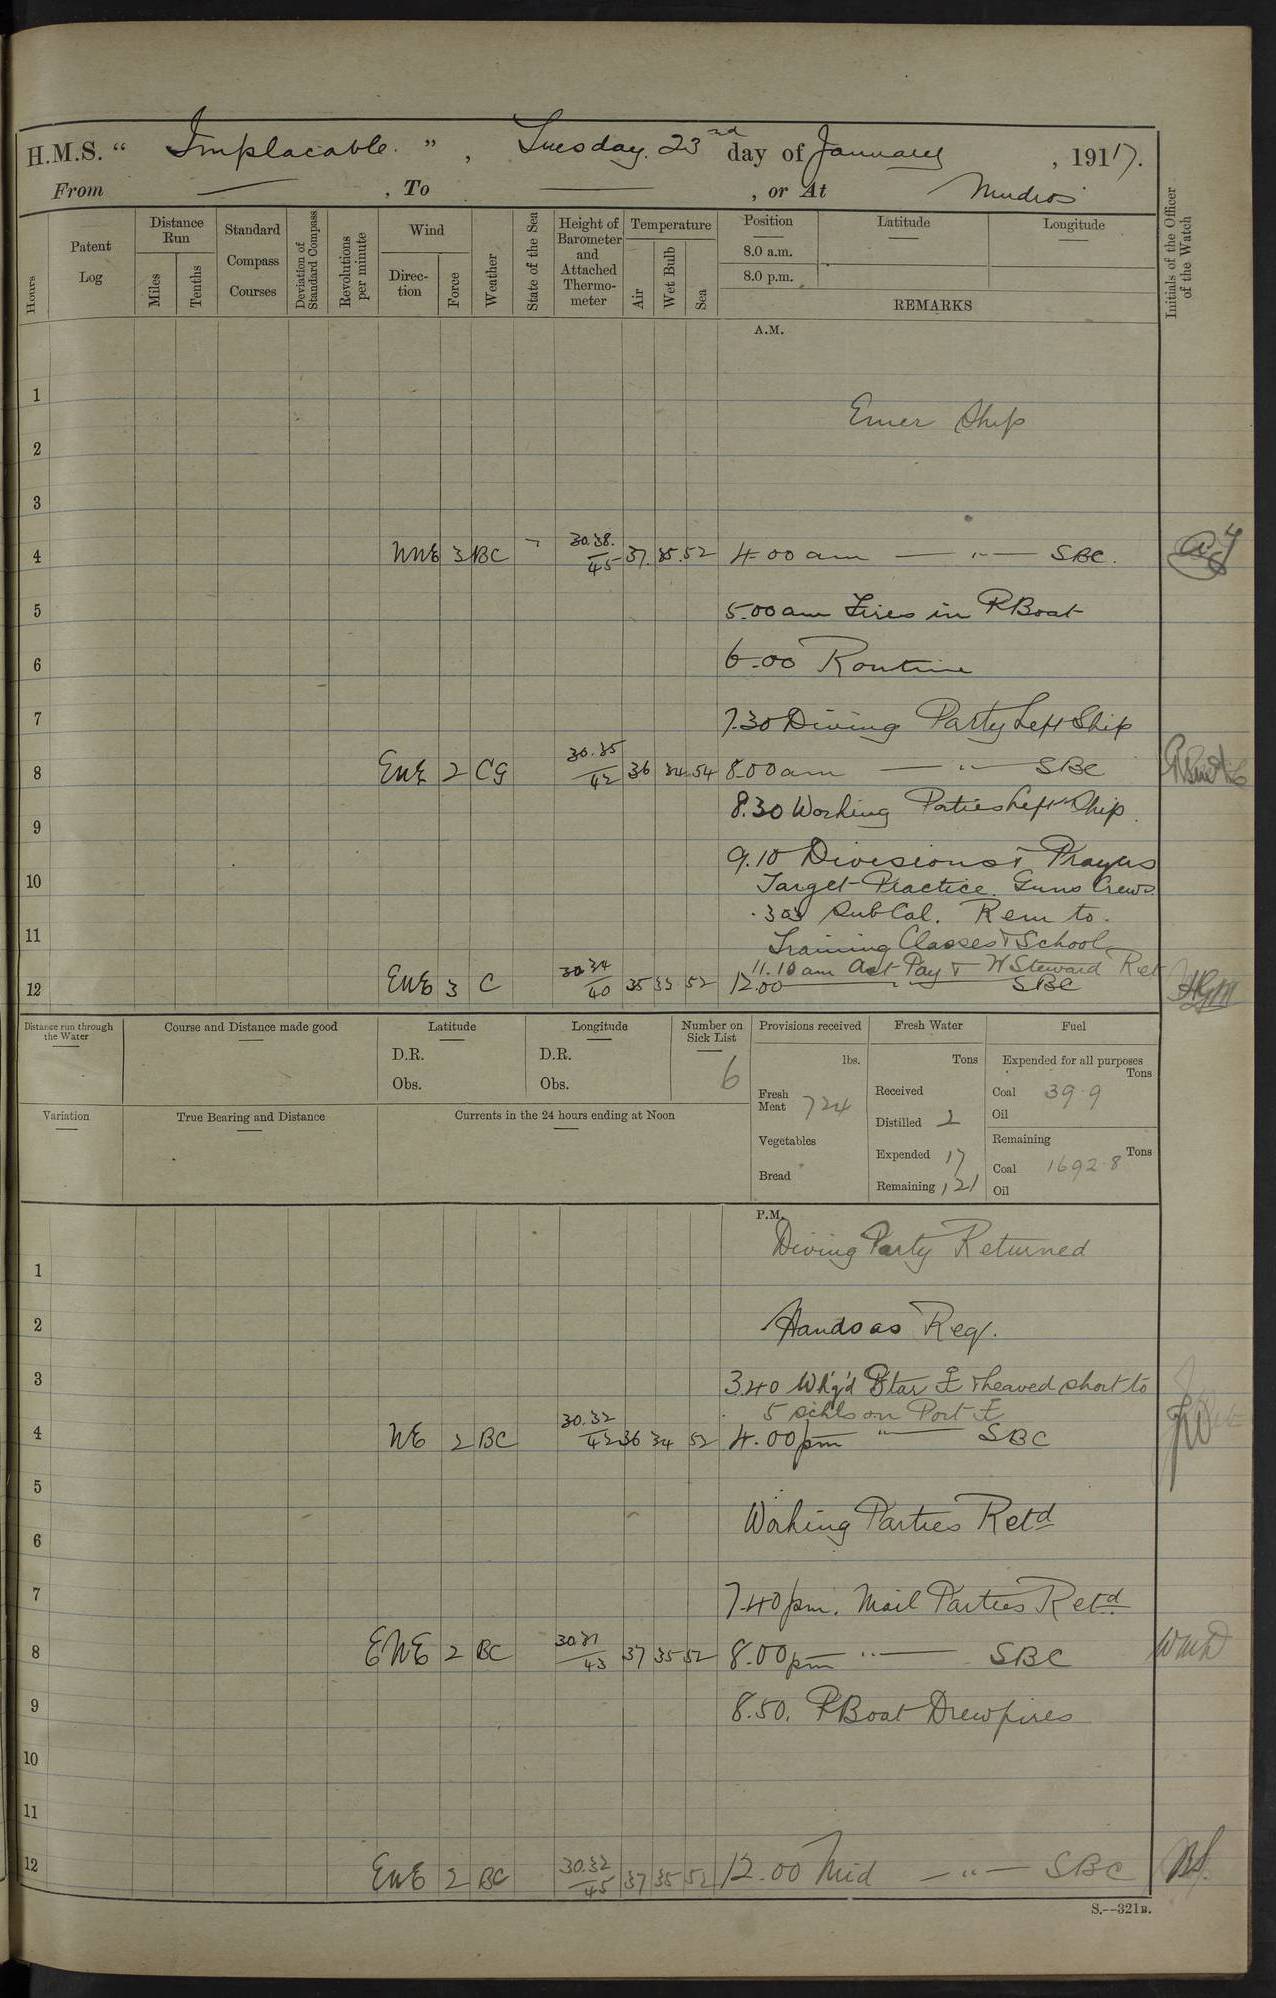 H.M.S. " Implacable. " , Tuesday. 23rd day of January , 1917.
From — , To — , or At Mudros
Hours
Patent Log
Distance Run
Miles
Tenths
Standard Compass Courses
Deviation of Standard Compass
Revolutions per minute
Wind
Direction
Force
Weather
State of the Sea
Height of Barometer and Attached Thermometer
Temperature
Air
Wet Bulb
Sea
Position
8.0 a.m.
8.0 p.m.
Latitude
Longitude
REMARKS
Initials of the Officer of the Watch
A.M.
1
Emer Ship
2
3
4 NNE 3 BC 30.38. 45 37. 35. 52 4.00 am — " — SBC.
5 5.00 am Fires in PBoat
6 6.00 Routine
7 7.30 Diving Party Left Ship
8 ENE 2 CG 30.35 42 36 34 54 8.00 am — " — SBC
8.30 Working Parties Left Ship.
9
9.10 Divisions & Prayers
10 Target Practice. Guns Crews.
.303 Sub Cal. Rem to.
11 Training Classes & School
11.10 am Act Pay & W Steward Ret
12 ENE 3 C 30.34 40 35 33 52 12.00 — " — SBC HGM
Distance run through the Water
Course and Distance made good
Latitude
D.R.
Obs.
Longitude
D.R.
Obs.
Number on Sick List
6
Provisions received
lbs.
Fresh Meat 724
Vegetables
Bread
Fresh Water
Tons
Received
Distilled 2
Expended 17
Remaining 121
Fuel
Expended for all purposes
Tons
Coal 39.9
Oil
Remaining
Tons
Coal 1692.8
Oil
Variation
True Bearing and Distance
Currents in the 24 hours ending at Noon
P.M.
Diving Party Returned
1
2 Hands as Req.
3 3.40 Wh'g'd Star & heaved short to
5 schls on Port
4 NE 2 BC 30.32 42 36 34 52 4.00 pm " — SBC
5
Working Parties Retd
6
7 7.40 pm. Mail Parties Retd
8 ENE 2 BC 30.31 43 37 35 52 8.00 pm " — SBC
9 8.50. PBoat Drew fires
10
11
12 ENE 2 BC 30.32 45 37 35 52 12.00 Mid — " — SBC
S.--321B.